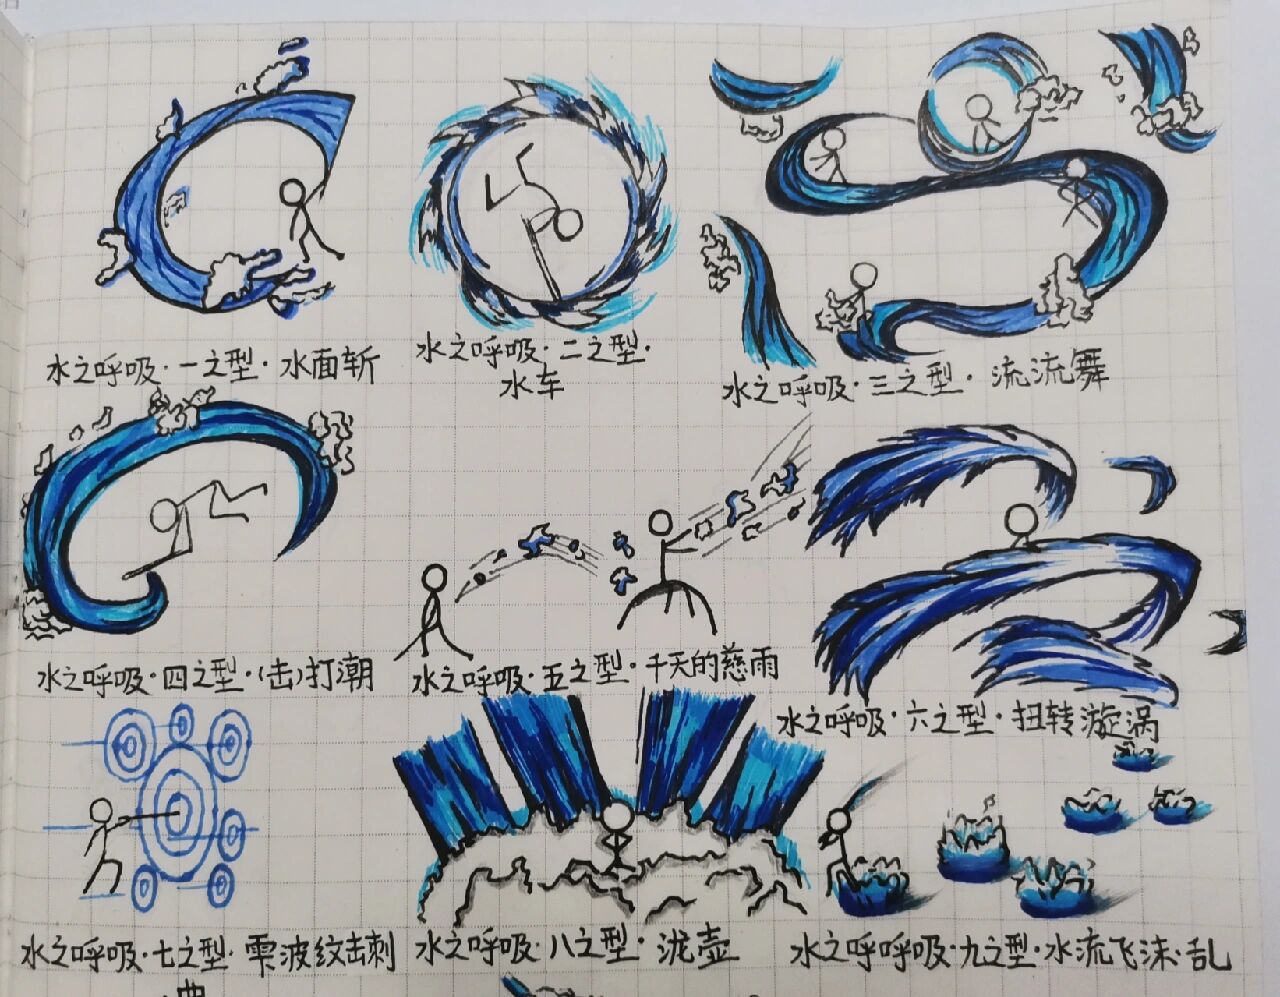 水之呼吸·一之型·水面斩
水之呼吸·二之型·
水车
水之呼吸·三之型·流流舞
水之呼吸·四之型·(击)打潮
水之呼吸·五之型·千天的慈雨
水之呼吸·六之型·扭转漩涡
水之呼吸·七之型·雫波纹击刺
曲
水之呼吸·八之型·泷壶
水之呼呼吸·九之型·水流飞沫·乱